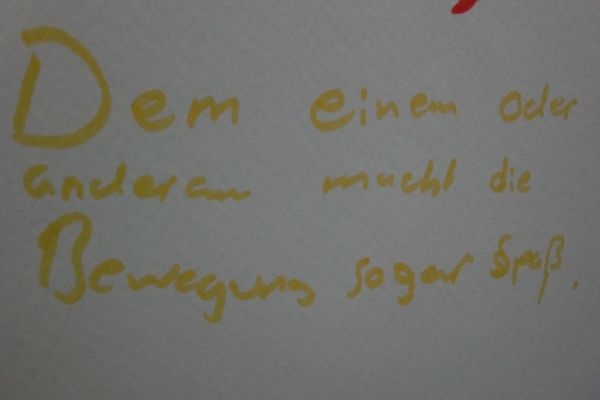 Dem einem oder
anderem macht die
Bewegung sogar Spaß.